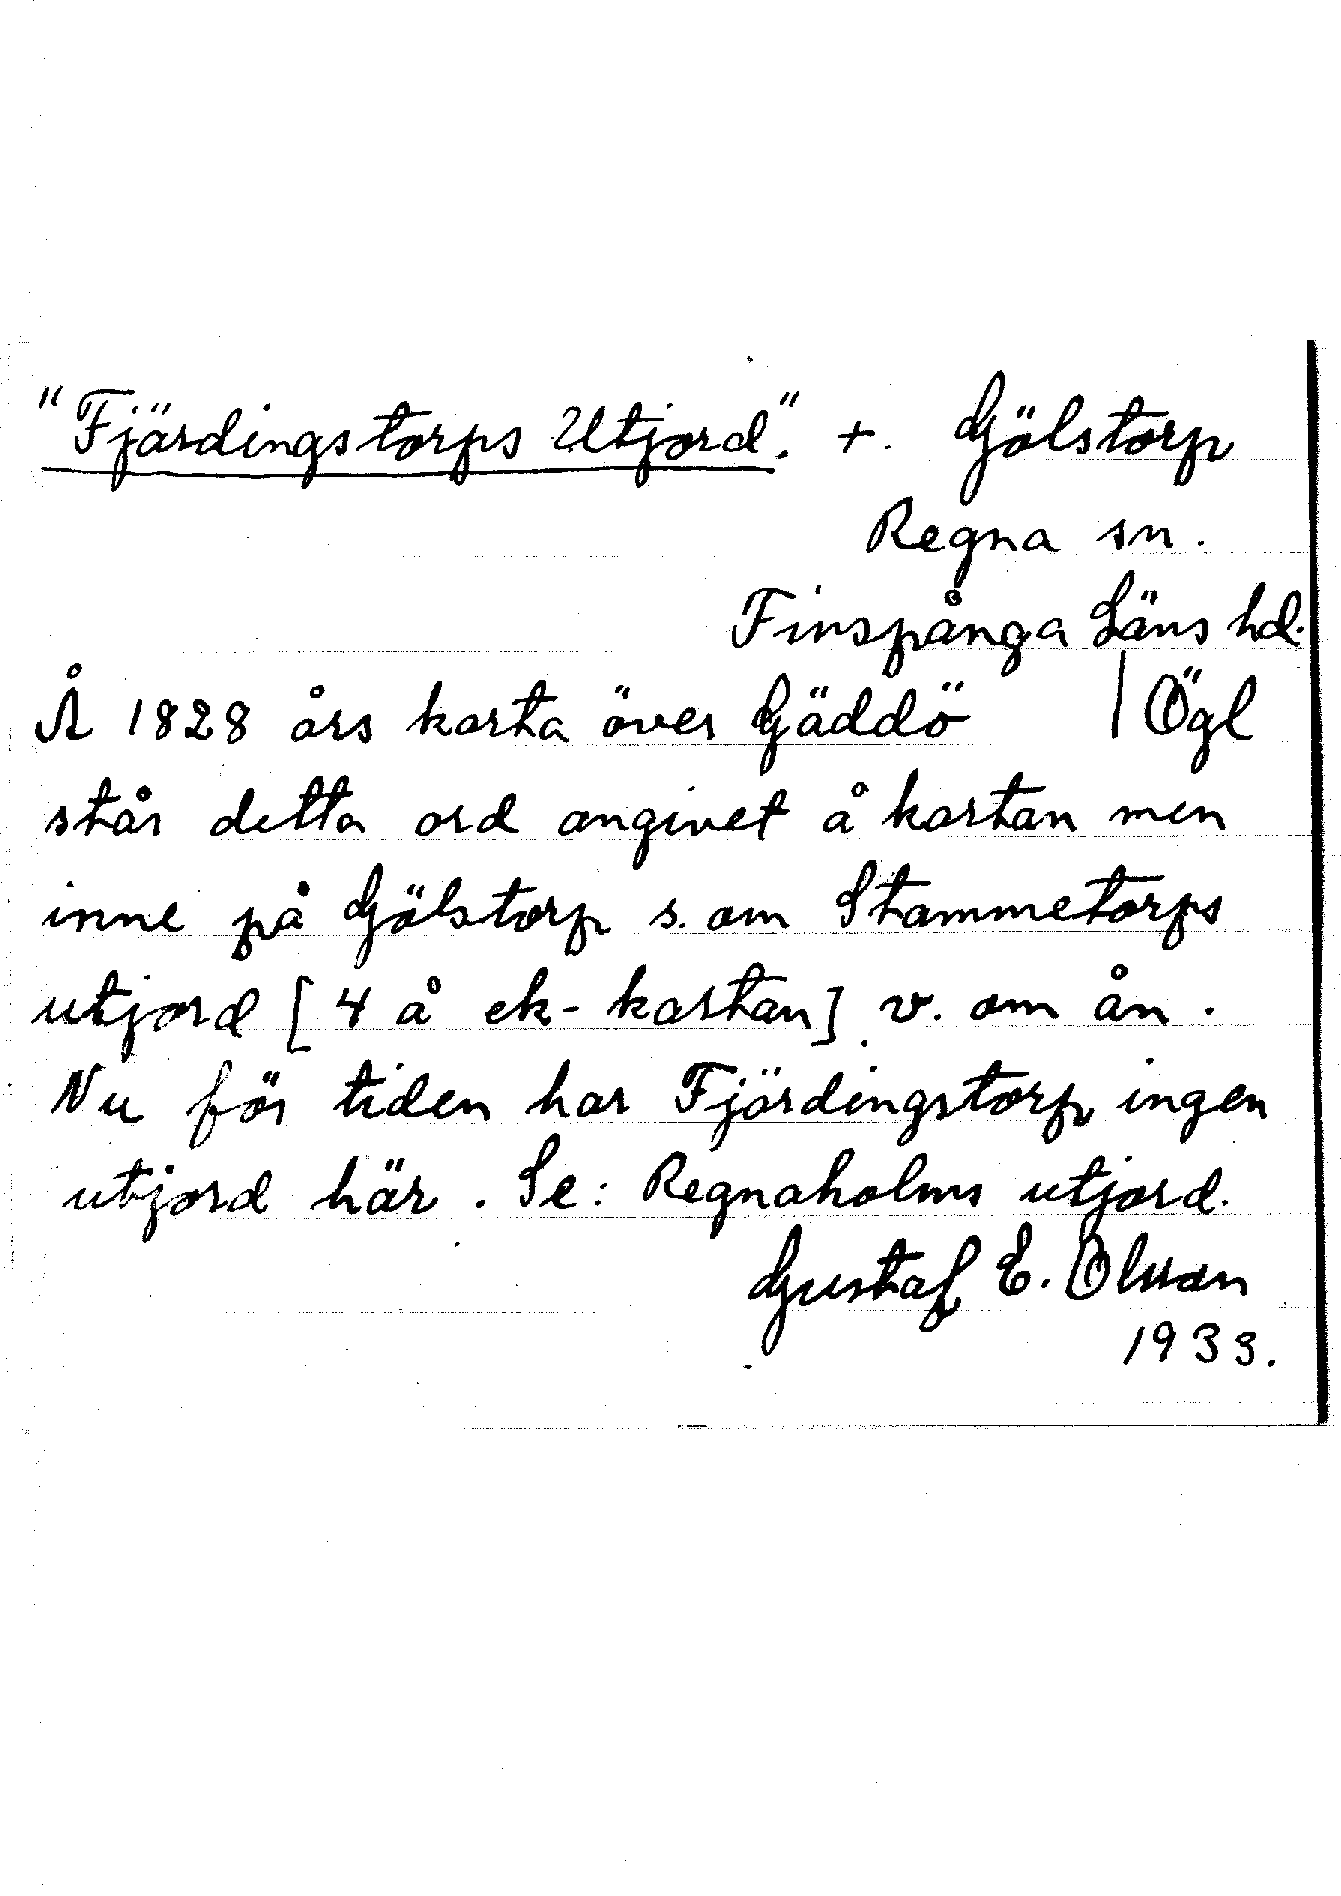 "Fjärdingstorps Utjord". +. Gölstorp
Regna sn.
Finspånga Läns hd.
Å 1828 års karta över Gäddö | Ögl
står detta ord angivet å kartan men
inne på Gölstorp s. om Stammetorps
utjord [4 å ek-kartan] v. om ån.
Nu för tiden har Fjärdingstorp ingen
utjord här. Se: Regnaholms utjord.
Gustaf E. Olsson
1933.